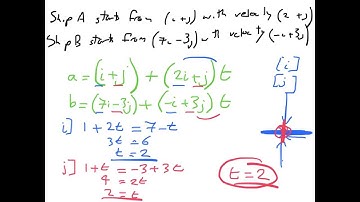 Ship A starts from (i+j) with velocity (2i+j)
Ship B starts from (7i-3j) with velocity (-i+3j)
a = (i+j) + (2i+j)t
b = (7i-3j) + (-i+3j)t
i] 1+2t = 7-t
3t = 6
t = 2
j] 1+t = -3+3t
4 = 2t
2 = t
[i]
[j]
t = 2